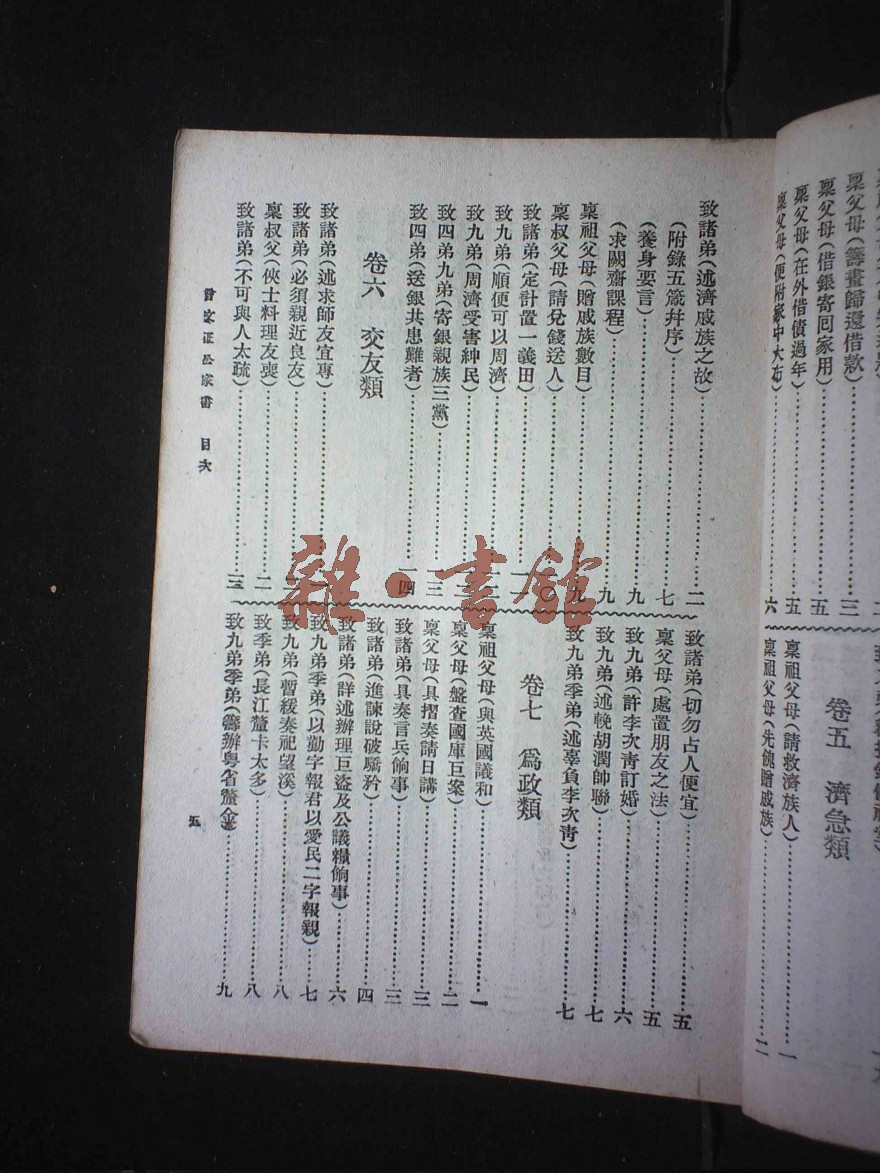 稟父母(籌畫歸還借款)……三
稟父母(借銀寄回家用)……五
稟父母(在外借債過年)……五
稟父母(便附家中大布)……六
卷五 濟急類
稟祖父母(請救濟族人)……一
稟祖父母(先餽贈戚族)……二
致諸弟(述濟戚族之故)……二
(附錄五箴幷序)……七
(養身要言)……九
(求闕齋課程)……九
稟祖父母(贈戚族數目)……九
稟叔父母(請兌錢送人)……〇
致諸弟(定計置一義田)
致九弟(順便可以周濟)
致九弟(周濟受害紳民)
致四弟九弟(寄銀親族三黨)……一三
致四弟(送銀共患難者)……一四
卷六 交友類
致諸弟(述求師友宜專)
致諸弟(必須親近良友)
稟叔父(俠士料理友喪)……二
致諸弟(不可與人太疏)……三
致諸弟(切勿占人便宜)……五
稟父母(處置朋友之法)……五
致九弟(許李次青訂婚)……六
致九弟(述輓胡潤帥聯)……七
致九弟季弟(述辜負李次青)……七
卷七 爲政類
稟祖父母(與英國議和)……一
稟父母(盤查國庫巨案)……二
稟父母(具摺奏請日講)……三
致諸弟(具奏言兵餉事)……三
致諸弟(進諫說破驕矜)……四
致諸弟(詳述辦理巨盜及公議糧餉事)……六
致九弟季弟(以勤字報君以愛民二字報親)……七
致九弟(暫緩奏祀望溪)……八
致季弟(長江釐卡太多)……八
致九弟季弟(籌辦粵省釐金)……九
曾文正公家書 目次
五
雜·書館